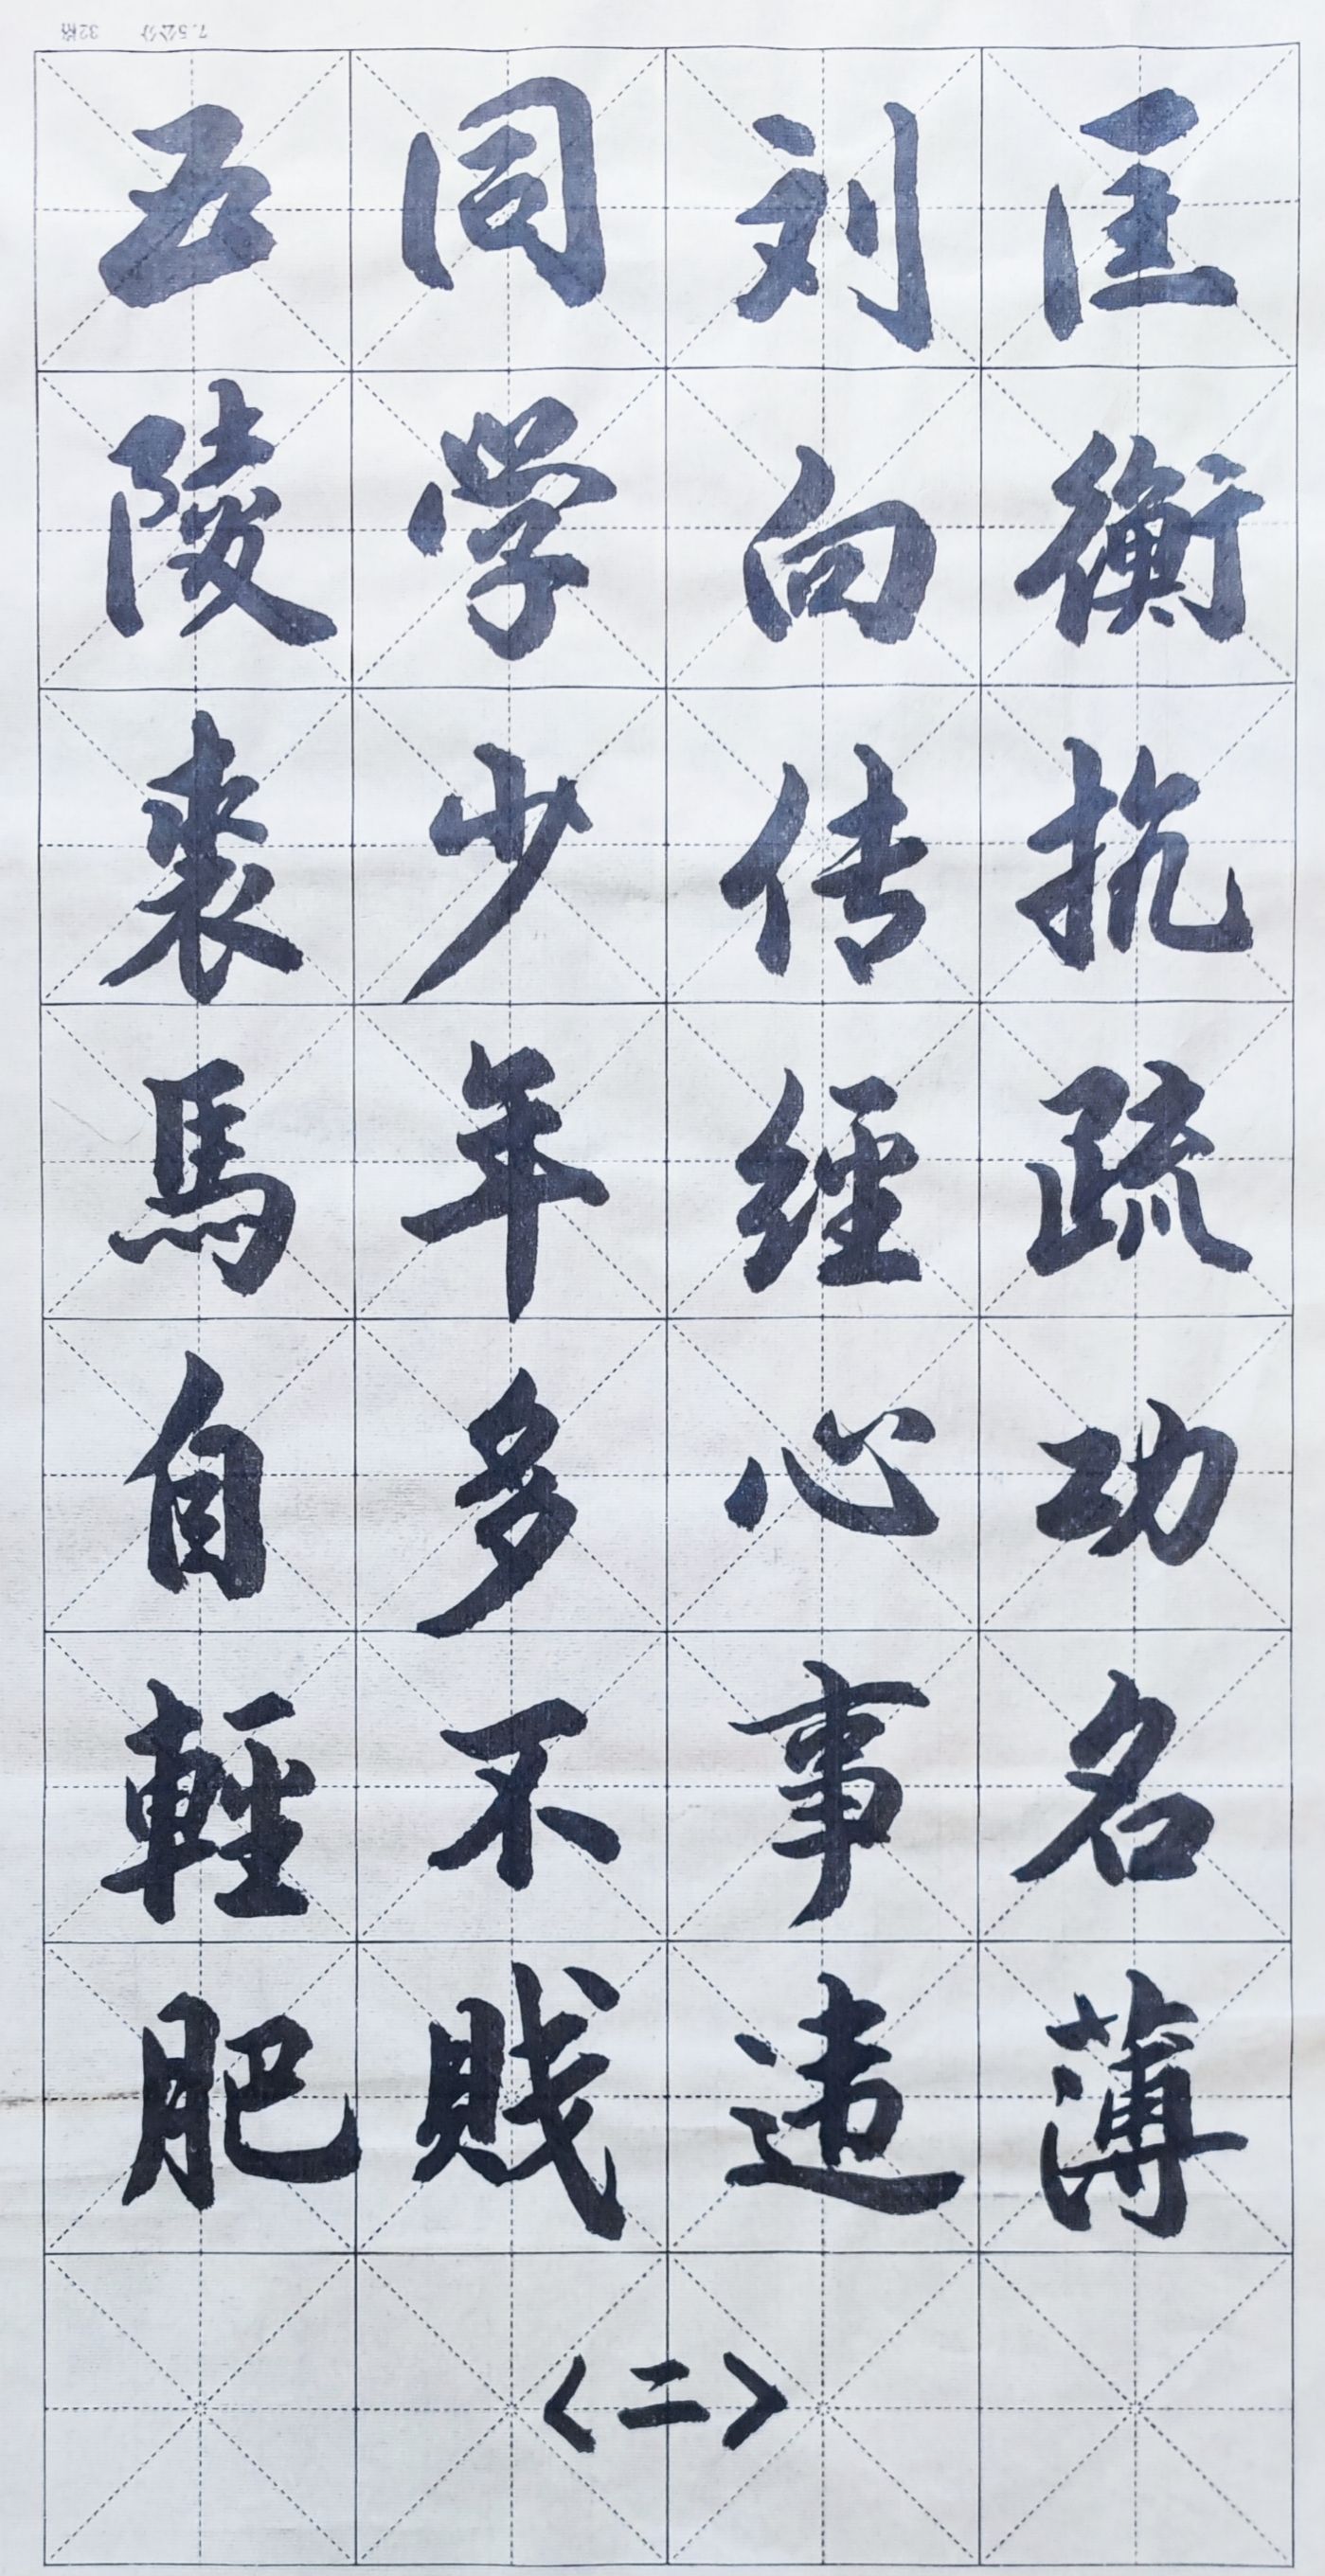 匡衡抗疏功名薄
刘向传经心事违
同学少年多不賎
五陵裘馬自輕肥
<二>
7.5公分 32格